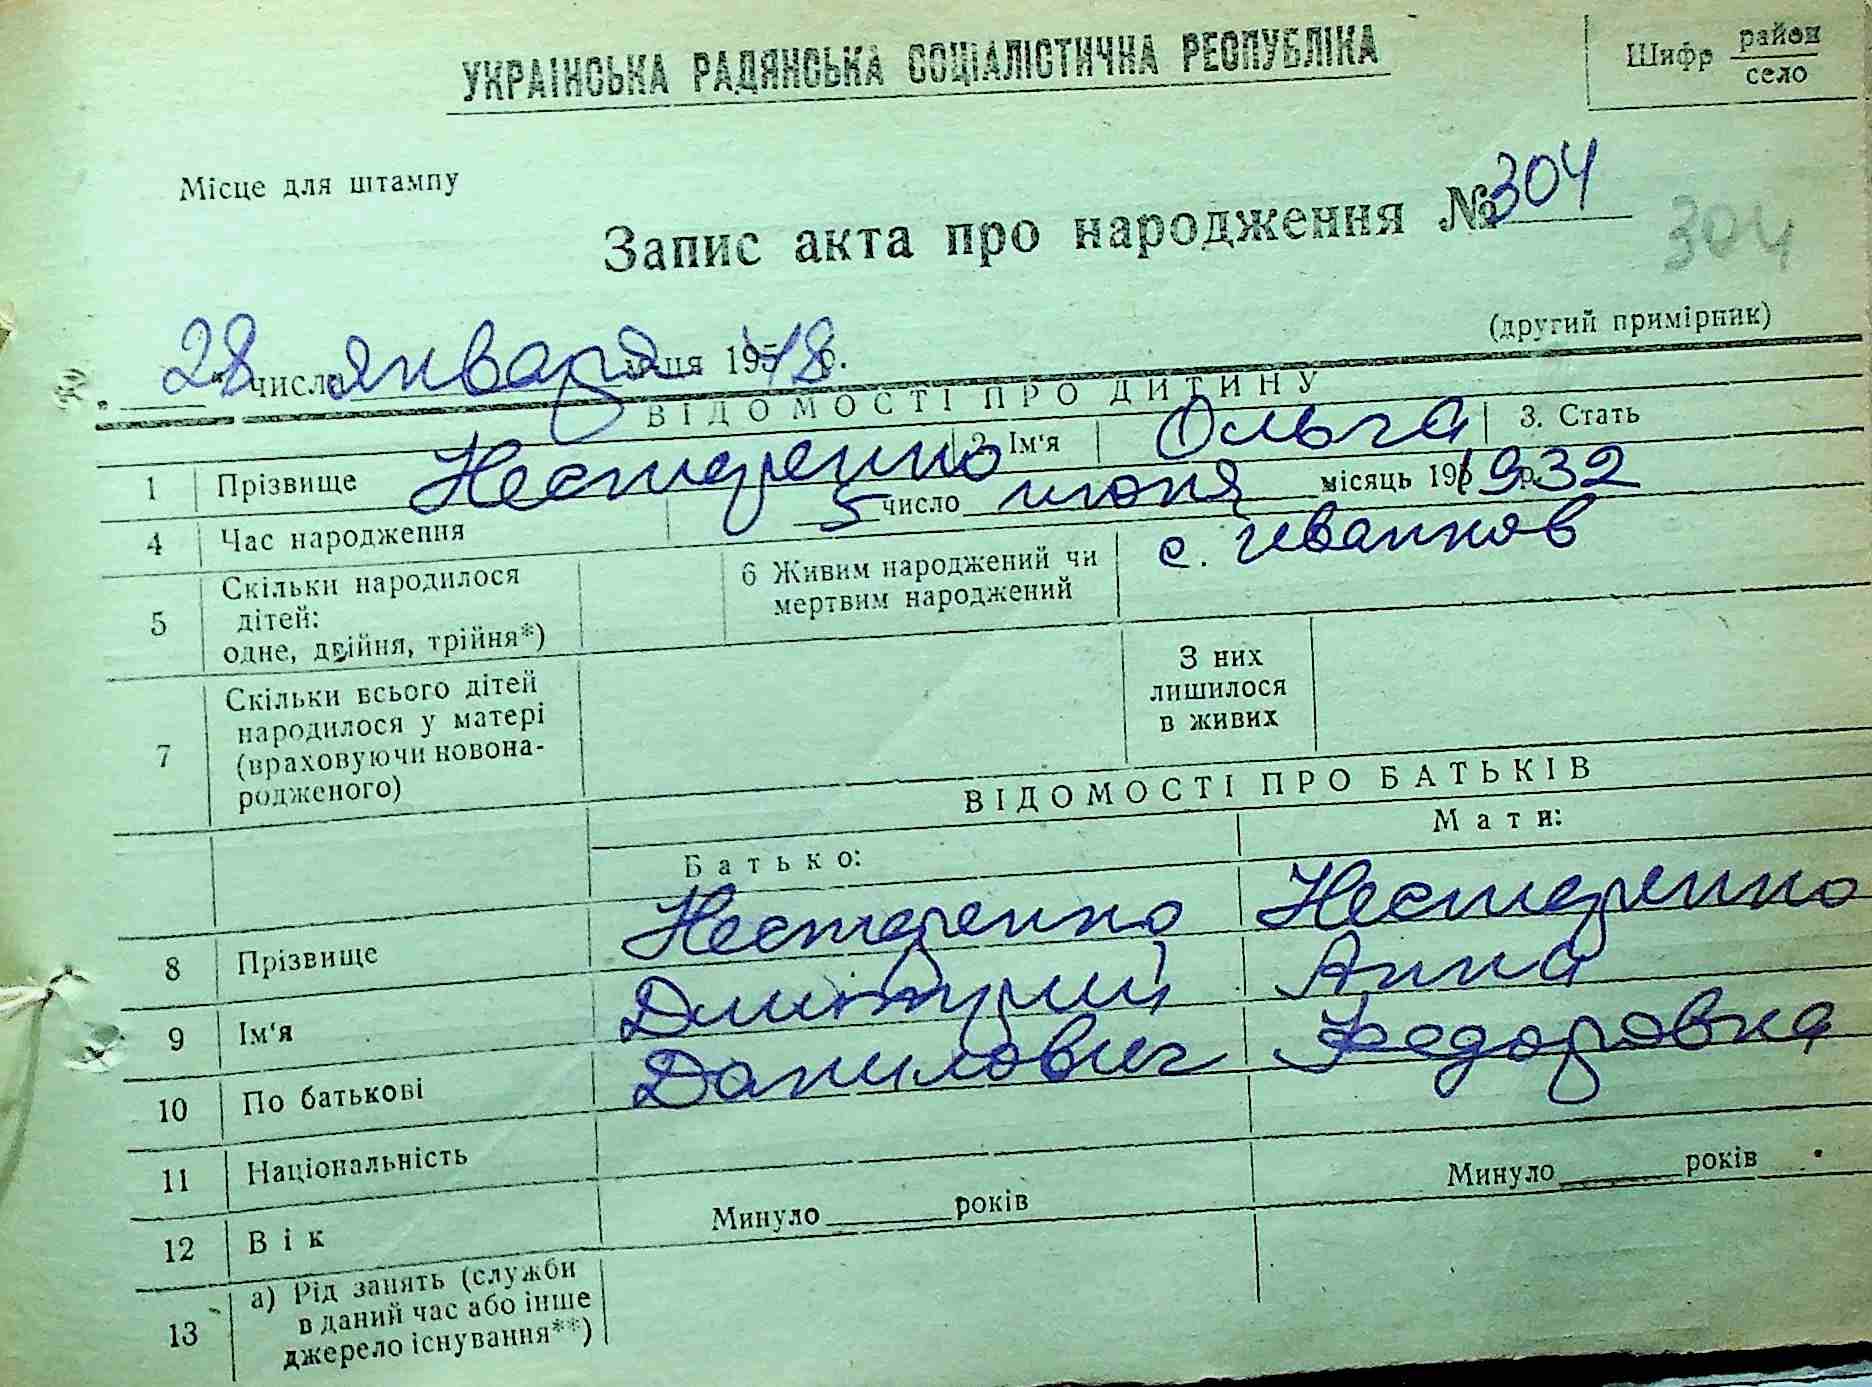 УКРАЇНСЬКА РАДЯНСЬКА СОЦІАЛІСТИЧНА РЕСПУБЛІКА
Шифр район
село
Місце для штампу
Запис акта про народження № 304
304
(другий примірник)
28 число января 1948 р.
ВІДОМОСТІ ПРО ДИТИНУ
1 Прізвище Нестеренко 2. Ім'я Ольга 3. Стать
4 Час народження 5 число июня місяць 1932
5 Скільки народилося дітей: одне, двійня, трійня*) 6 Живим народжений чи мертвим народжений с. Иванков
7 Скільки всього дітей народилося у матері (враховуючи новонародженого) З них лишилося в живих
ВІДОМОСТІ ПРО БАТЬКІВ
Батько: Мати:
8 Прізвище Нестеренко Нестеренко
9 Ім'я Дмитрий Анна
10 По батькові Данилович Федоровна
11 Національність
12 Вік Минуло років Минуло років
13 а) Рід занять (служби в даний час або інше джерело існування**)